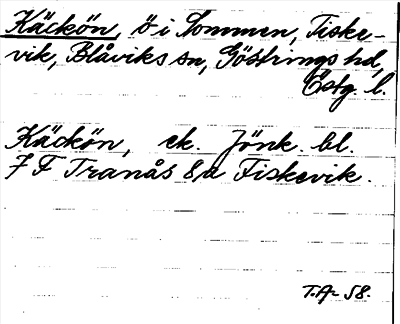 Käckön, ö i Sommen, Fiske-
vik, Blåviks sn, Göstrings hd,
Östg. l.
Käckön, ek. Jönk. bl.
7 F Tranås 8a Fiskevik.
T.A- 58.